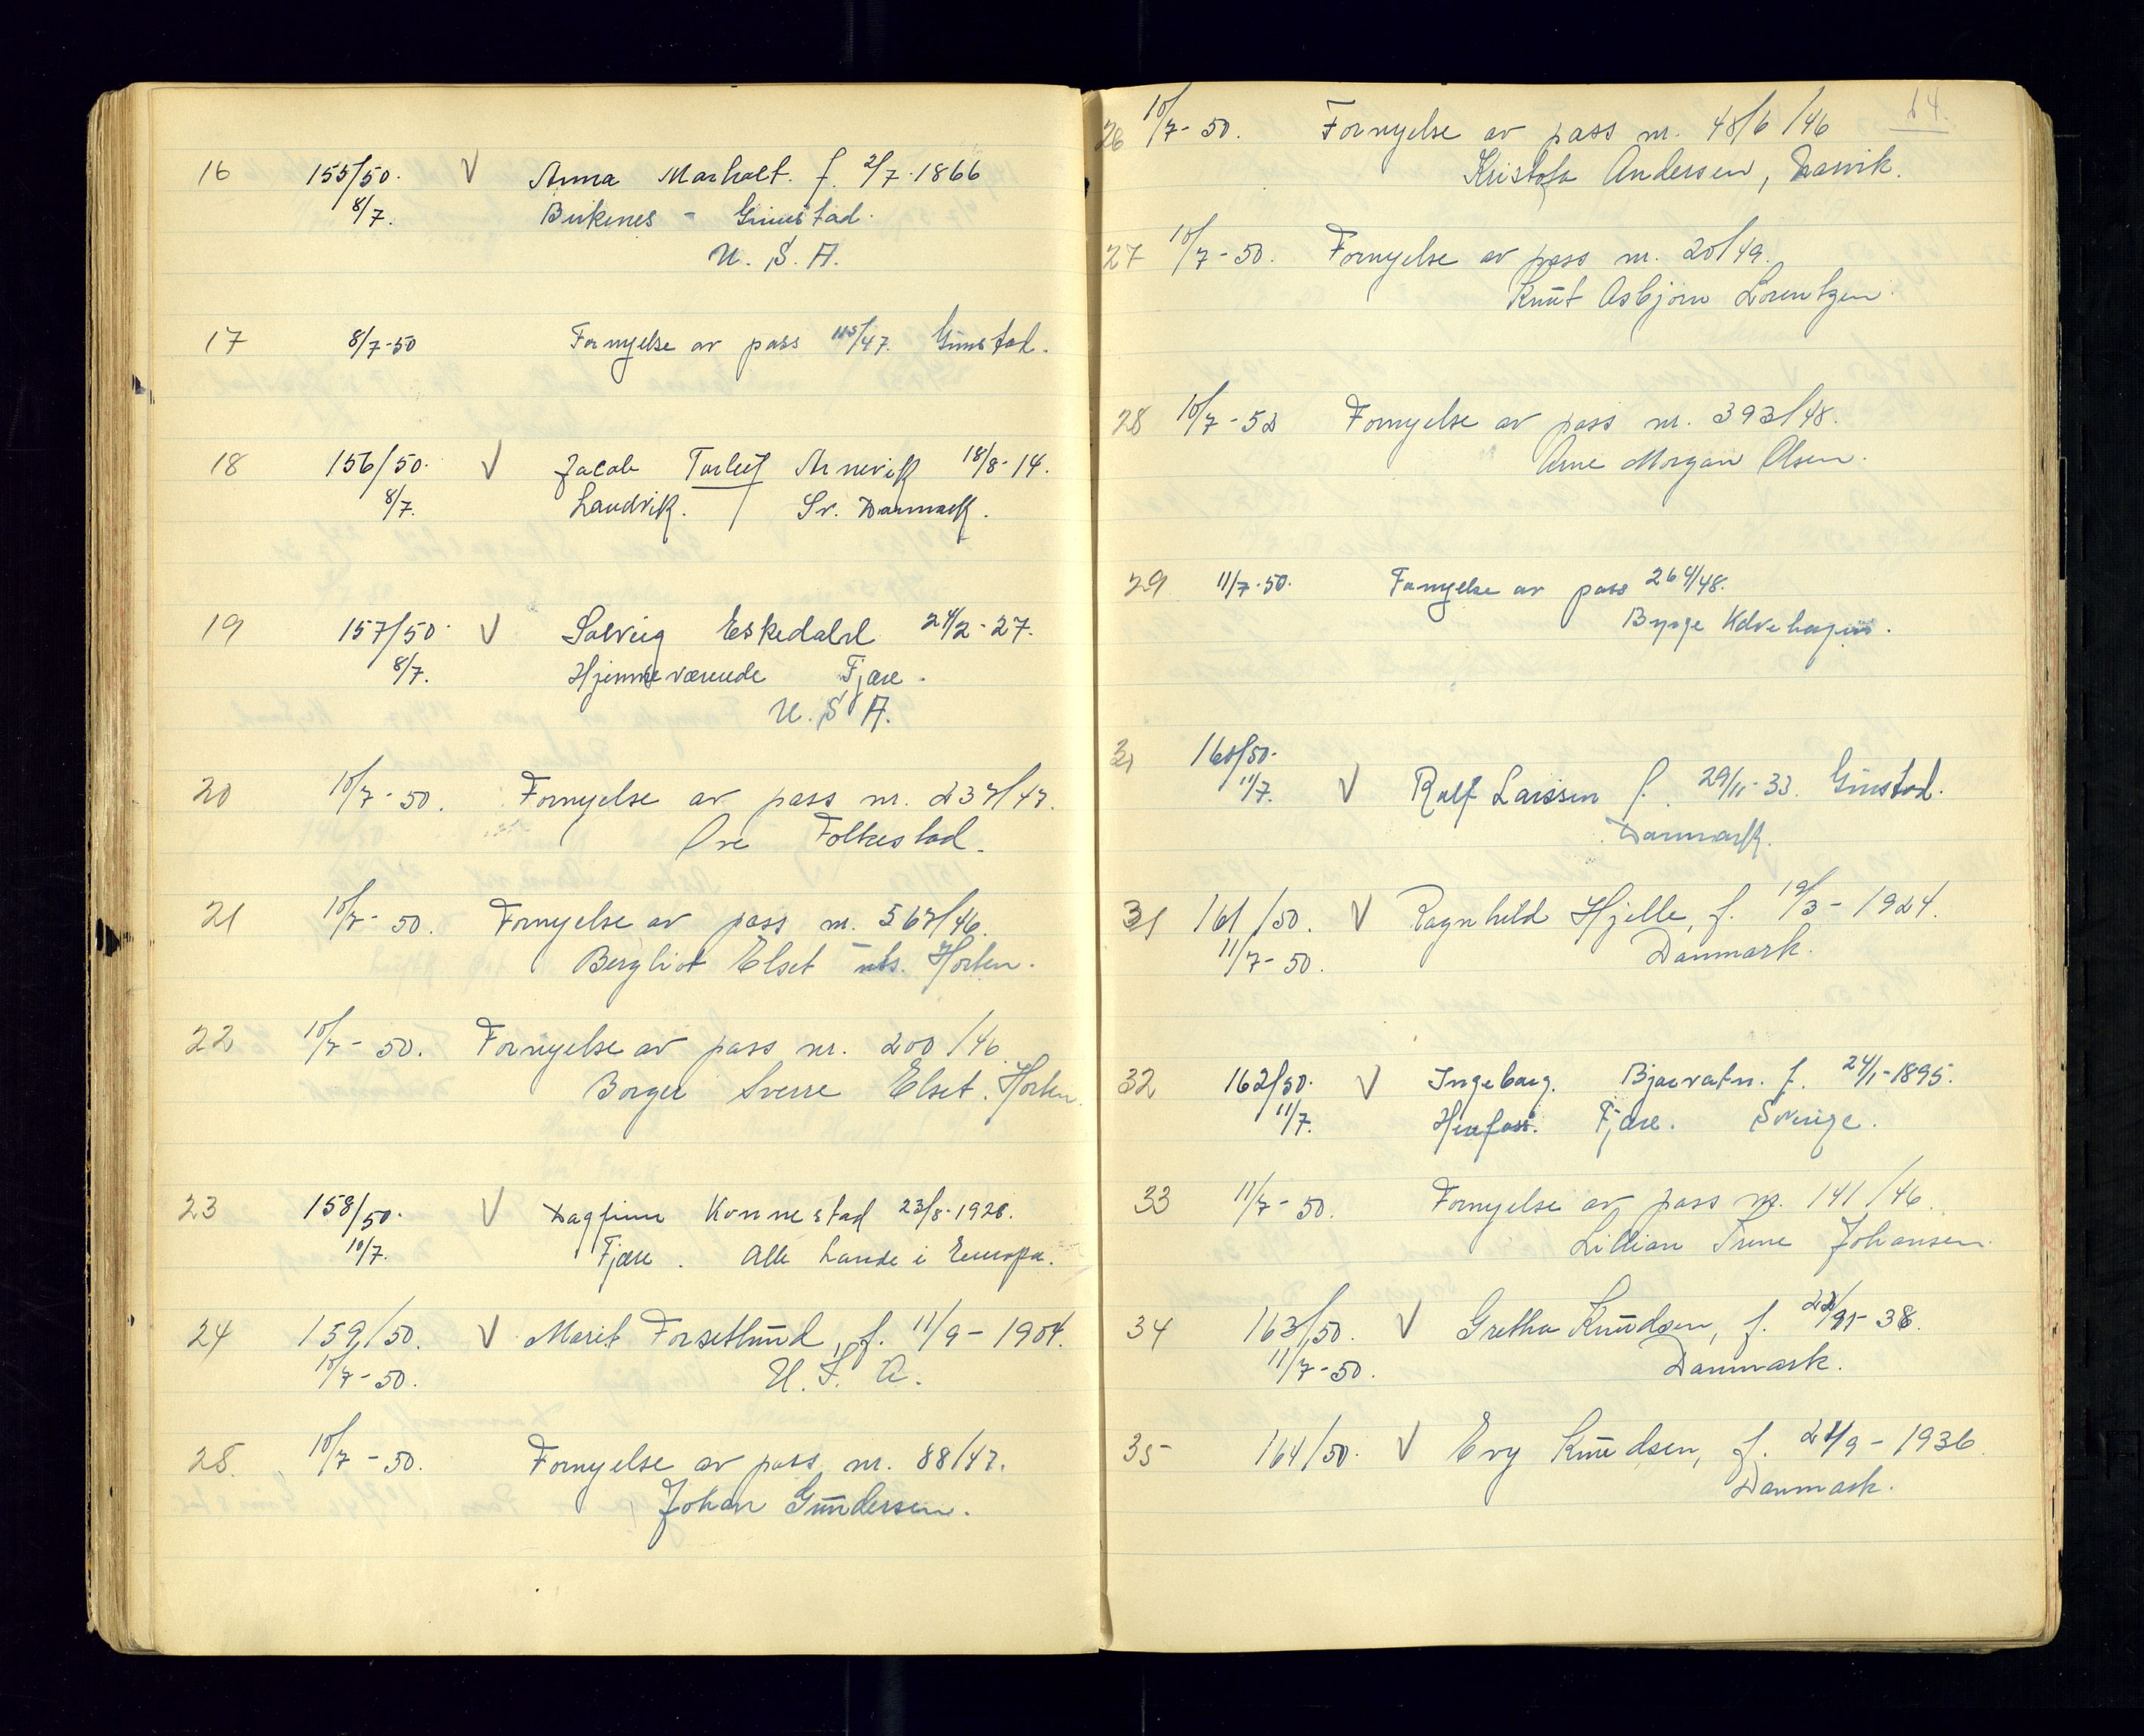 16 155/50. V Anna Marholt. f. 2/7.1866
8/7. Birkenes - Grimstad.
U. S. A.
17 8/7-50 Fornyelse av pass 115/47. Grimstad.
18 156/50. V Jacob Torleif Arnevik 18/8-14.
8/7. Landvik. Sv. Danmark.
19 157/50. V Solveig Eskedahl 24/2-27.
8/7. Hjemmeværende Fjære.
U. S A.
20 10/7-50. Fornyelse av pass nr. 237/47.
Ove Folkestad.
21 10/7-50. Fornyelse av pass nr. 567/46.
Bergliot Elset uts. Horten.
22 10/7-50. Fornyelse av pass nr. 200/46.
Borger Sverre Elset. Horten.
23 158/50. V Dagfinn Konnestad 23/8-1928.
10/7. Fjære. Alle Lande i Europa.
24 159/50. V Marit Forsetlund, f. 11/9-1904.
10/7-50. U. S. A.
25. 10/7-50. Fornyelse av pass nr. 88/47.
Johan Gundersen.
64.
26 10/7-50. Fornyelse av pass nr. 48/6/46
Andersen, Narvik.
27 10/7-50. Fornyelse av pass nr. 20/49.
Knut Asbjørn Lorentzen.
28 10/7-50 Fornyelse av pass nr. 393/48.
Arne Morgan Olsen.
29 11/7-50. Fornyelse av pass 264/48.
Kelvehagen.
160/50.
11/7. V Ralf Larssen f. 29/11-33. Grimstad.
Danmark.
31 161/50. V Ragnhild Hjelle, f. 19/3-1924.
11/7-50. Danmark.
32 162/50. V Ingeborg. Bjorvatn. f. 24/1-1895.
11/7. Fjære. Sverige.
33 11/7-50. Fornyelse av pass nr. 141/46.
Lillian Irene Johansen.
34 163/50. V Grethe Knudsen, f.
11/7-50. Danmark.
35 164/50. V Evy Knudsen, f. 24/9-1936
Danmark.